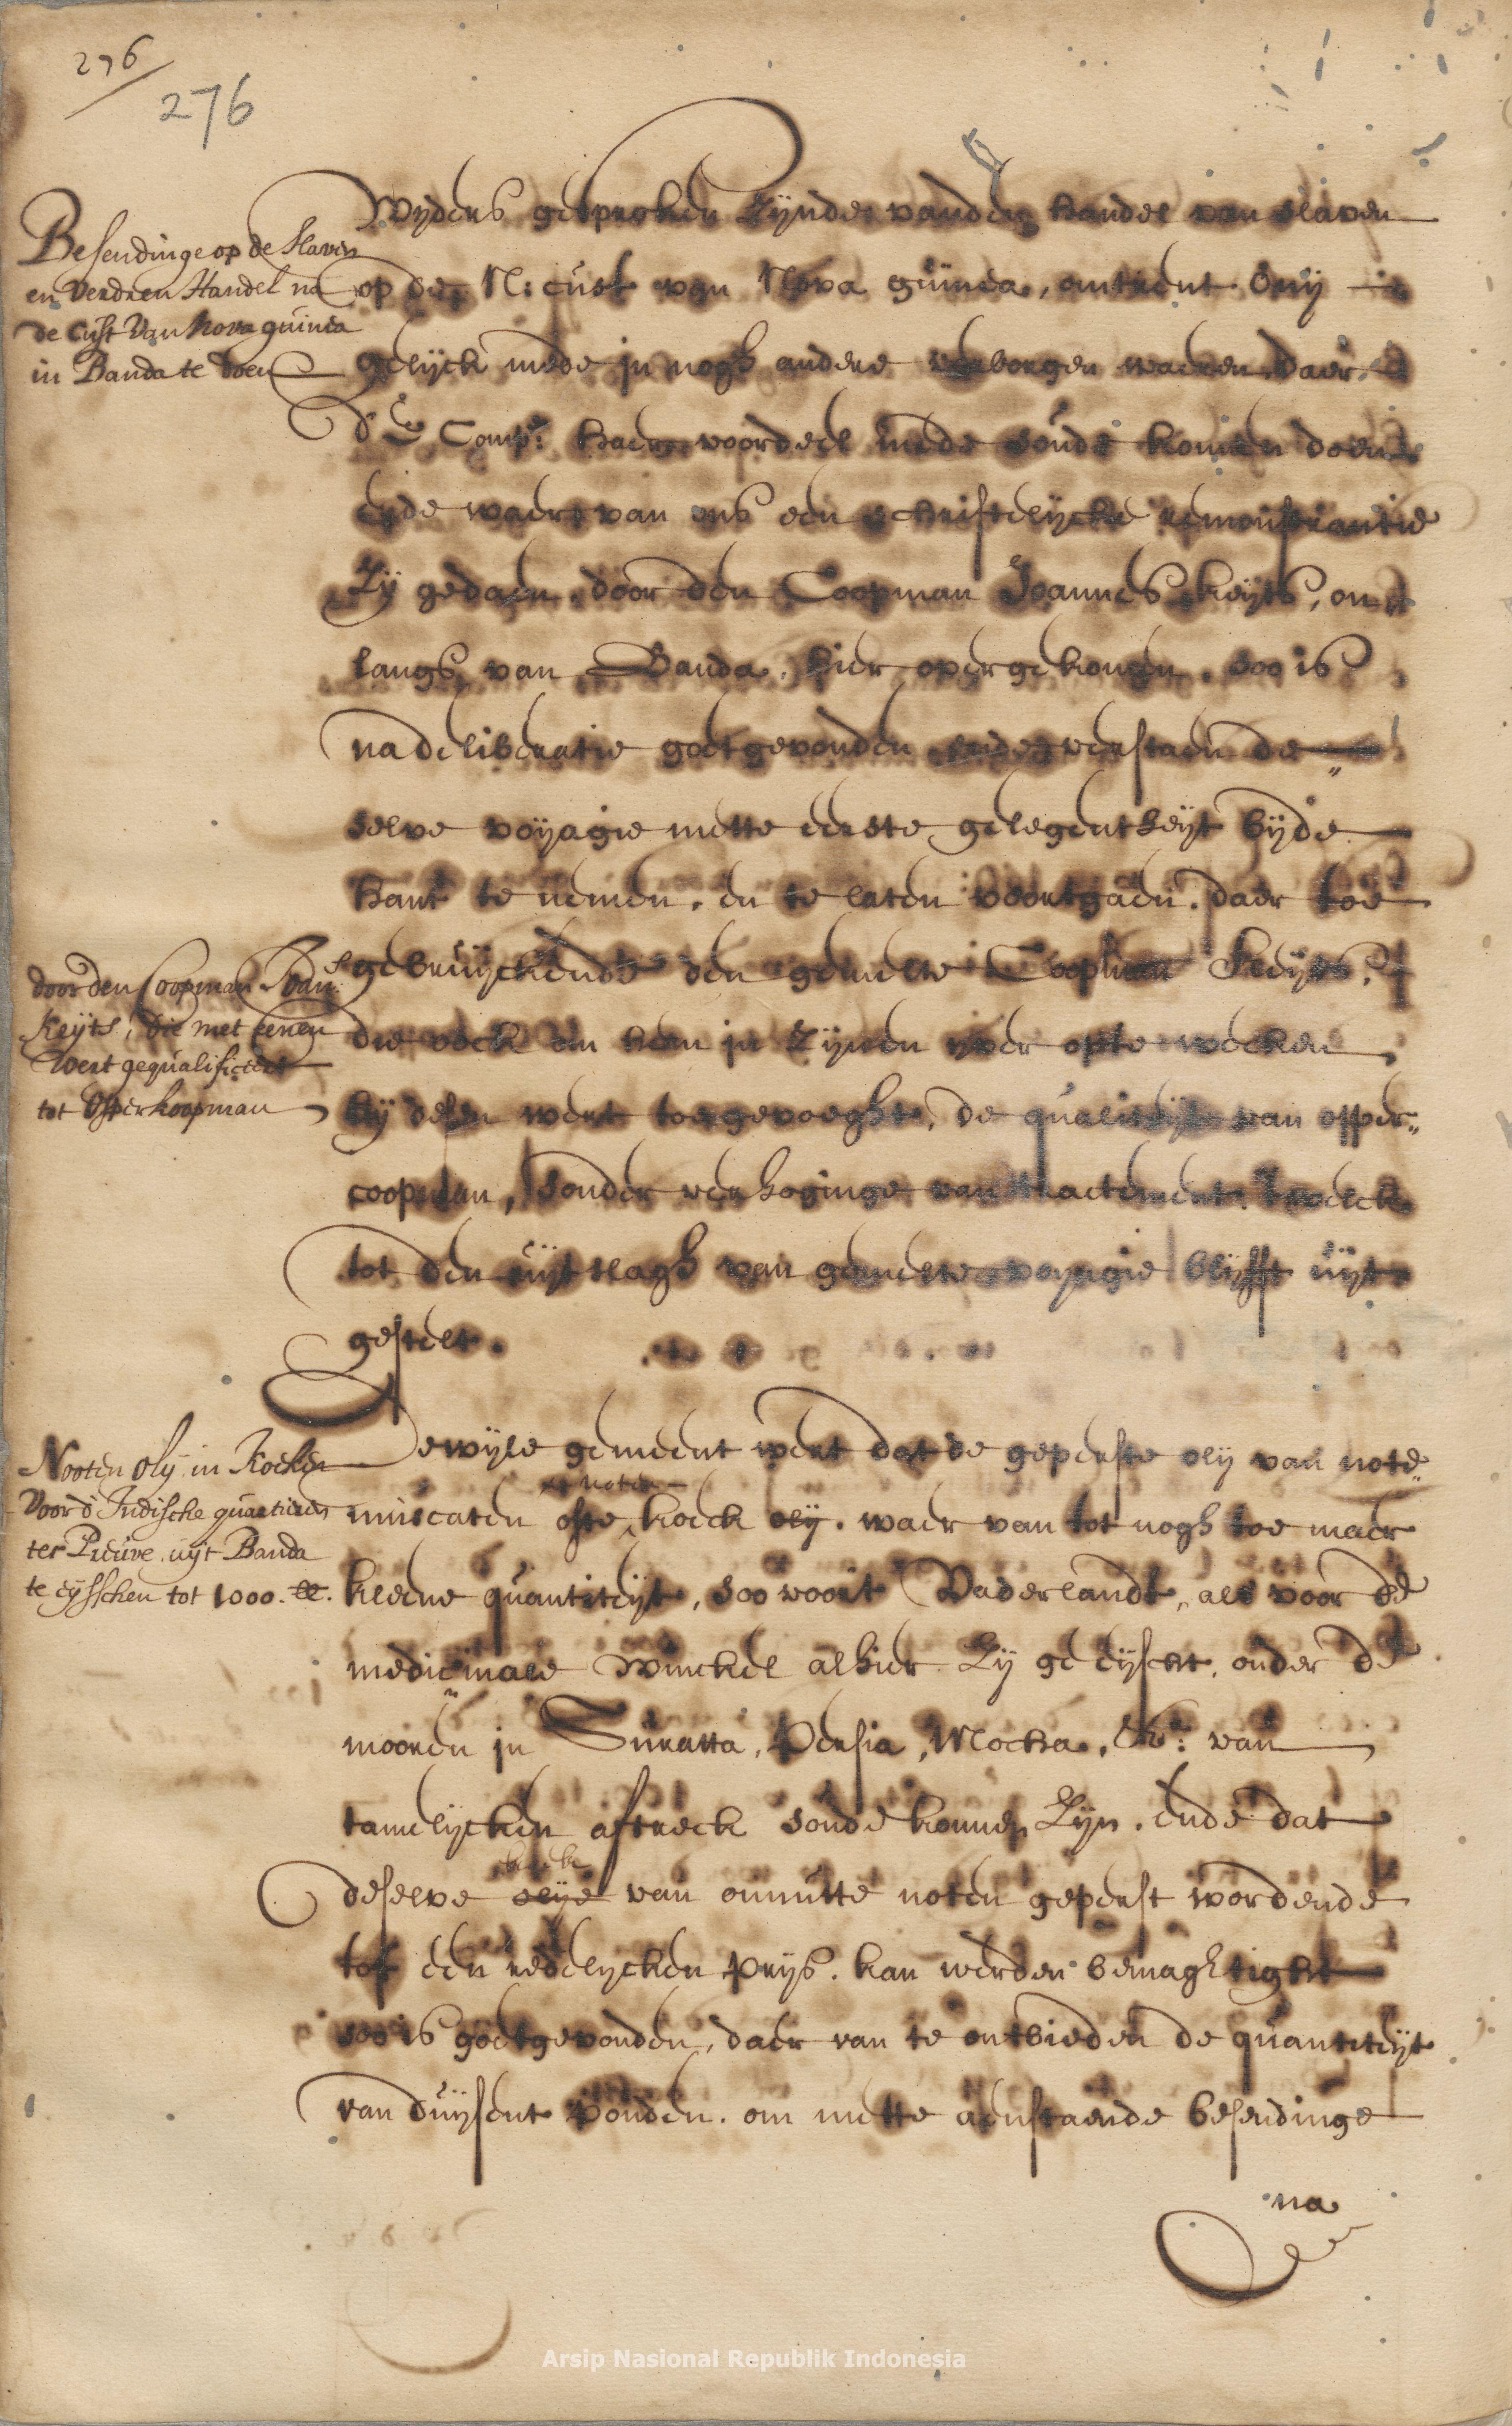 276
276
Besendinge op de slaven
en verdren Handel na
de Cust van Nova guinea
in Banda te doen
Wyders gesproken zynde vanden handel van slaven
op de N: cust van Nova guinea, omtrent Onij
gelijck mede in nogh andere verborgen waeren, daer
d'E Comp: haer voordeel mede soude konnen doen
ende waer van ons een schriftelijcke remonstrantie
zij gedaen, door den Coopman Joannes Keyts, on
langs van Banda, hier overgekomen, soo is
na deliberatie goetgevonden ende verstaen de
selve voyagie mette eerste gelegentheyt bijde
hant te nemen, en te laten voortgaen, daer toe
door den Coopman Joan:
Keyts, die met eenen
wert gequalificeert
tot Opperkoopman
gebruijckende den gemelte Coopman Keyts,
die oock om hem in zijnen yver op te wecken
bij desen wert toegevoeght, de qualiteyt van opper
coopman, sonder verhoginge van tractement, 't welck
tot den uijtslagh van gemelte voyagie blijfft uijt
gestelt.
Nooten olij in Koeken
voor d'Indische quartieren
ter Preuve uijt Banda
te eijsschen tot 1000. lb.
Dewijle gemeent wert dat de geperste olij van note
muscaten ofte noten koeck olij, waer van tot nogh toe maer
kleene quantiteijt, soo voor 't Vaderlandt, als voor de
medicinale Winckel alhier zij geeijscht, onder de
mooren in Suratta, Persia, Mocha, &a: van
tamelijcken aftreck soude konnen zijn, ende dat
deselve koeck olije van onnutte noten geperst wordende
tot een redelycken prijs, kan werden bemaghtight
soo is goetgevonden, daer van te ontbieden de quantiteijt
van duijsent ponden, om mette aenstaende besendinge
na
Arsip Nasional Republik Indonesia